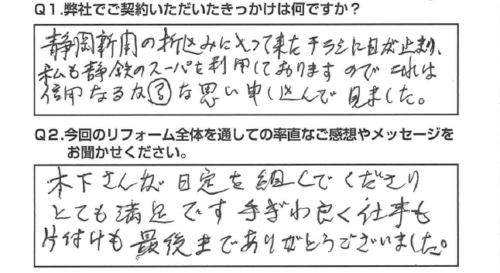 Q1.弊社でご契約いただいたきっかけは何ですか？
静岡新聞の折込みに入って来たチラシに目が止まり、
私も静鉄のスーパーを利用しておりますので これは
信用なるな な思い申し込んで見ました。
Q2.今回のリフォーム全体を通しての率直なご感想やメッセージを
お聞かせください。
木下さんが日定を組んでくださり
とても満足です 手ぎわ良く仕事も
片付けも最後までありがとうございました。